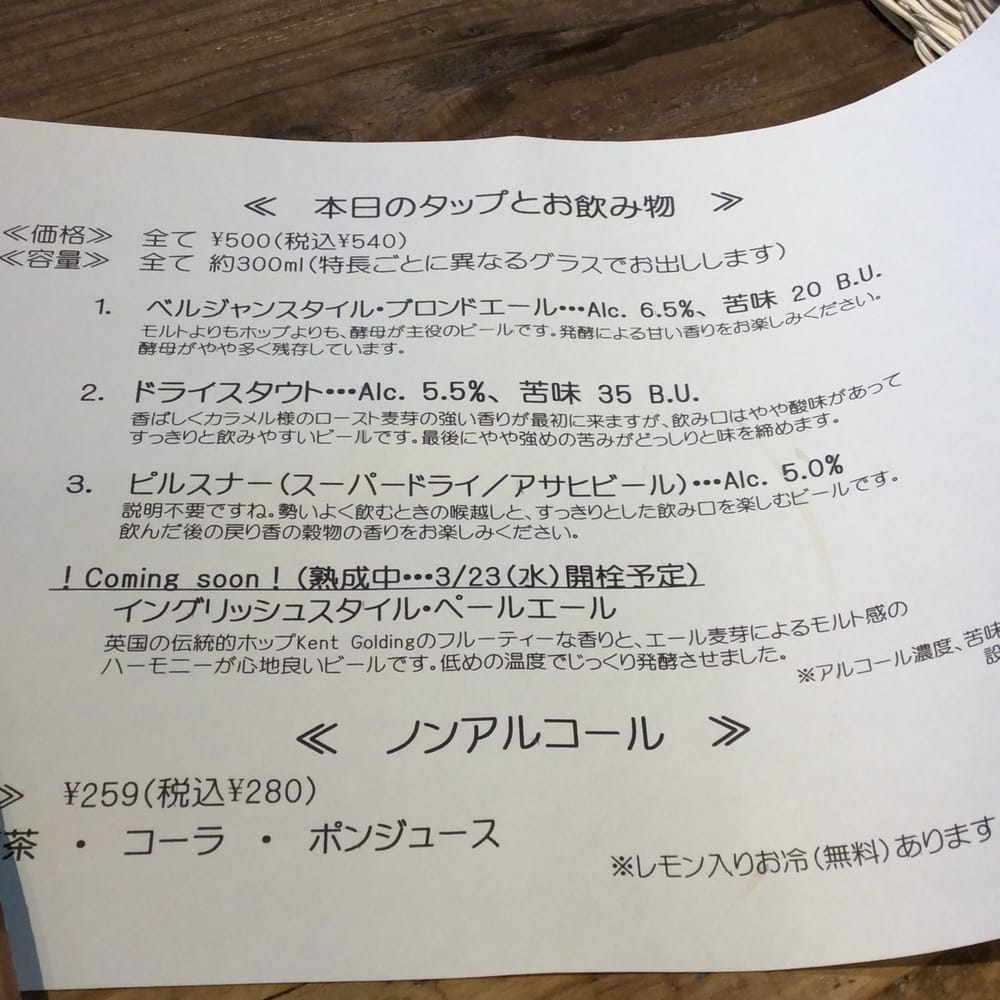 ≪ 本日のタップとお飲み物 ≫
≪価格≫ 全て ¥500(税込¥540)
≪容量≫ 全て 約300ml(特長ごとに異なるグラスでお出しします)
1. ベルジャンスタイル・ブロンドエール・・・Alc. 6.5%、苦味 20 B.U.
モルトよりもホップよりも、酵母が主役のビールです。発酵による甘い香りをお楽しみください。
酵母がやや多く残存しています。
2. ドライスタウト・・・Alc. 5.5%、苦味 35 B.U.
香ばしくカラメル様のロースト麦芽の強い香りが最初に来ますが、飲み口はやや酸味があって
すっきりと飲みやすいビールです。最後にやや強めの苦みがどっしりと味を締めます。
3. ピルスナー(スーパードライ/アサヒビール)・・・Alc. 5.0%
説明不要ですね。勢いよく飲むときの喉越しと、すっきりとした飲み口を楽しむビールです。
飲んだ後の戻り香の穀物の香りをお楽しみください。
!Coming soon!(熟成中・・・3/23(水)開栓予定)
イングリッシュスタイル・ペールエール
英国の伝統的ホップKent Goldingのフルーティーな香りと、エール麦芽によるモルト感の
ハーモニーが心地良いビールです。低めの温度でじっくり発酵させました。
※アルコール濃度、苦味
設
≪ ノンアルコール ≫
≫ ¥259(税込¥280)
茶 ・ コーラ ・ ポンジュース
※レモン入りお冷(無料)あります